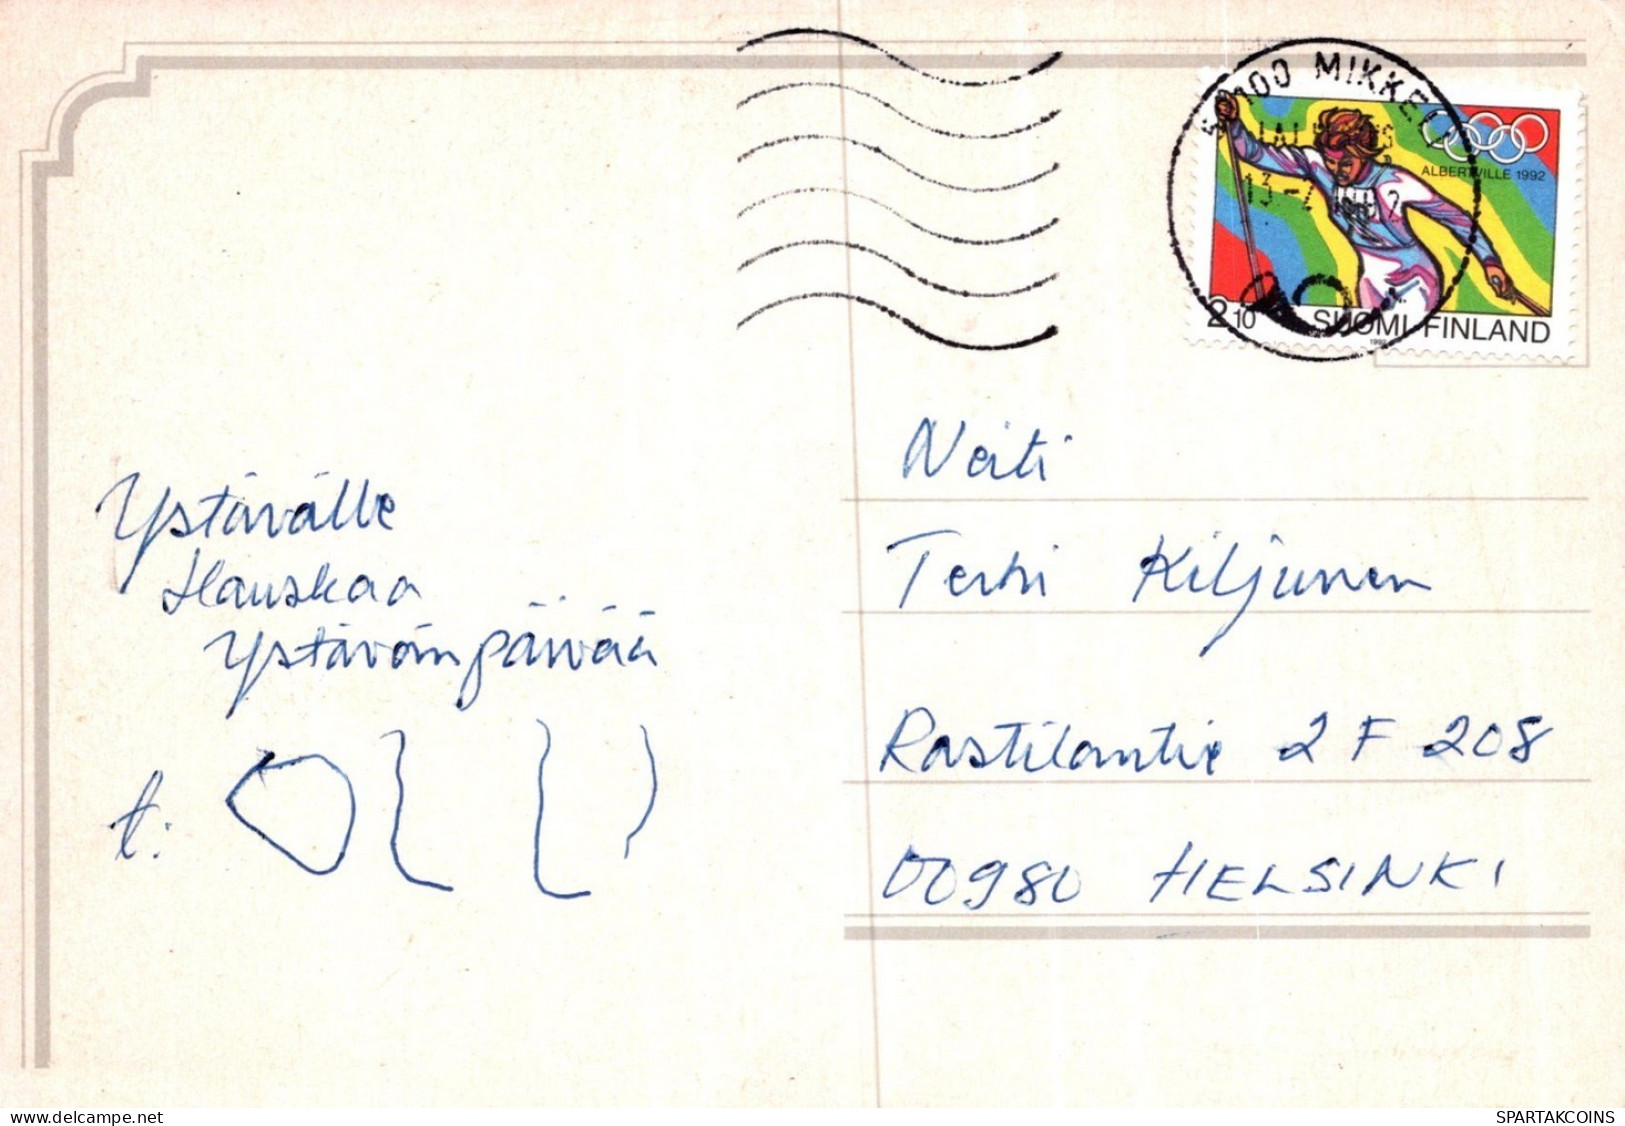 50100 MIKKELI
13.-2.1992
ALBERTVILLE 1992
2 10
SUOMI FINLAND
1992
Ystävälle
Hauskaa
Ystävänpäivää
t: OLLI
Neiti
Terhi Kiljunen
Rastilantie 2 F 208
00980 HELSINKI
www.delcampe.net
SPARTAKCOINS